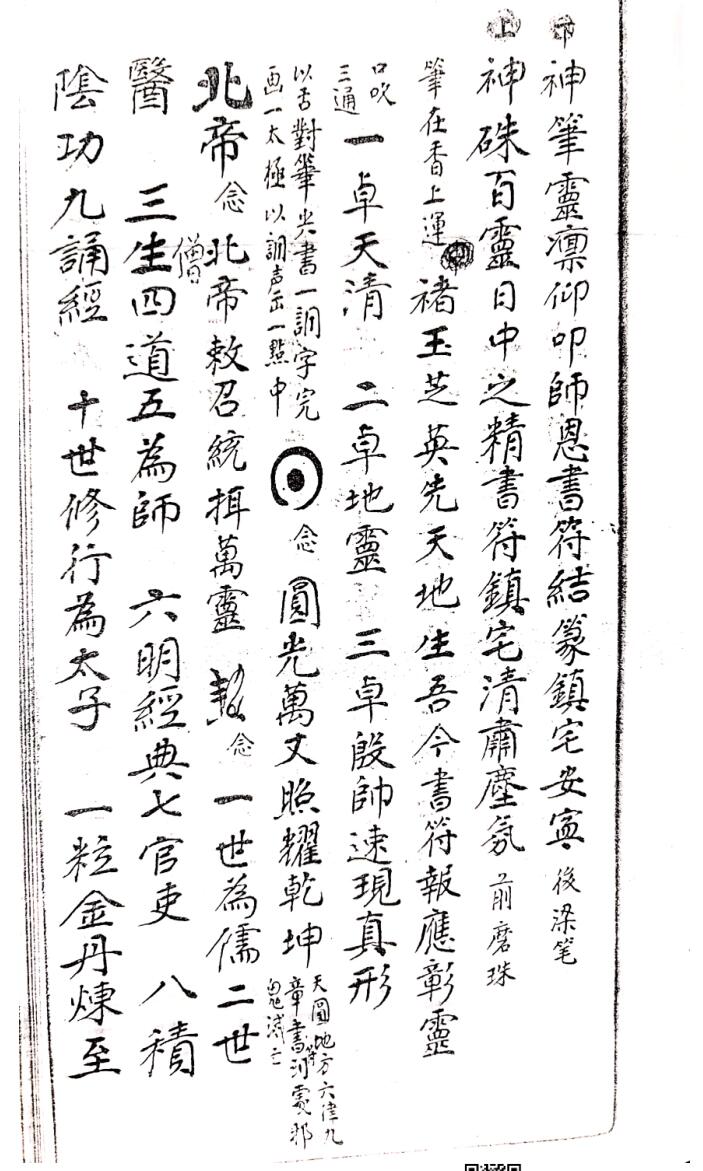 神筆靈凛仰叩師恩書符結篆鎮宅安寕 後梁笔
上神硃百靈日中之精書符鎮宅清肅塵氛 前磨珠
筆在香上運 褚玉芝英先天地生吾今書符報應彰靈
口吹三通 一卓天清 二卓地靈 三卓殷帥速現真形
以舌對筆尖書一詷字完画一太極以詷声缶一點中 念 圓光萬丈照耀乾坤 天圓地方六律九章書符河處邪鬼滅亡
北帝 念 北帝敕召統揖萬靈 念 一世為儒二世
醫 三生僧四道五為師 六明經典七官吏 八積
陰功九誦經 十世修行為太子 一粒金丹煉至